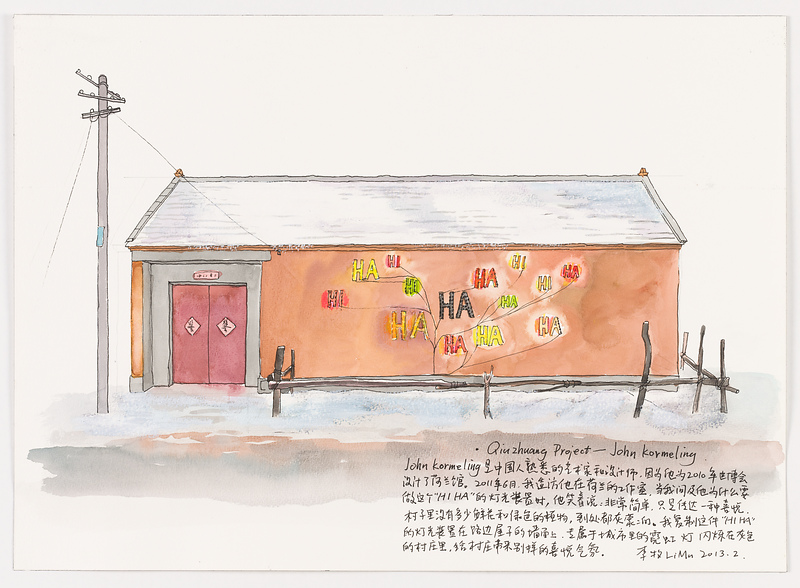 HA HI HI
HA HA
HI HI
HI
HA HA
HA HA
HA
HA
福 福
· Qiuzhuang Project — John Kormeling
John Kormeling 是中国人熟悉的艺术家和设计师，因为他为2010年世博会
设计了荷兰馆。2011年6月，我造访他在荷兰的工作室，当我问及他为什么要
做这个"HI HA"的灯光装置时，他笑着说：非常简单，只是传达一种喜悦。
村子里没有多少鲜花和绿色的植物，到处都灰蒙蒙的。我复制这件"HI HA"
的灯光装置在路边屋子的墙面上，专属于城市里的霓虹灯闪烁在灰色
的村庄里，给村庄带来别样的喜悦气氛。 李牧 Li Mu 2013.2.